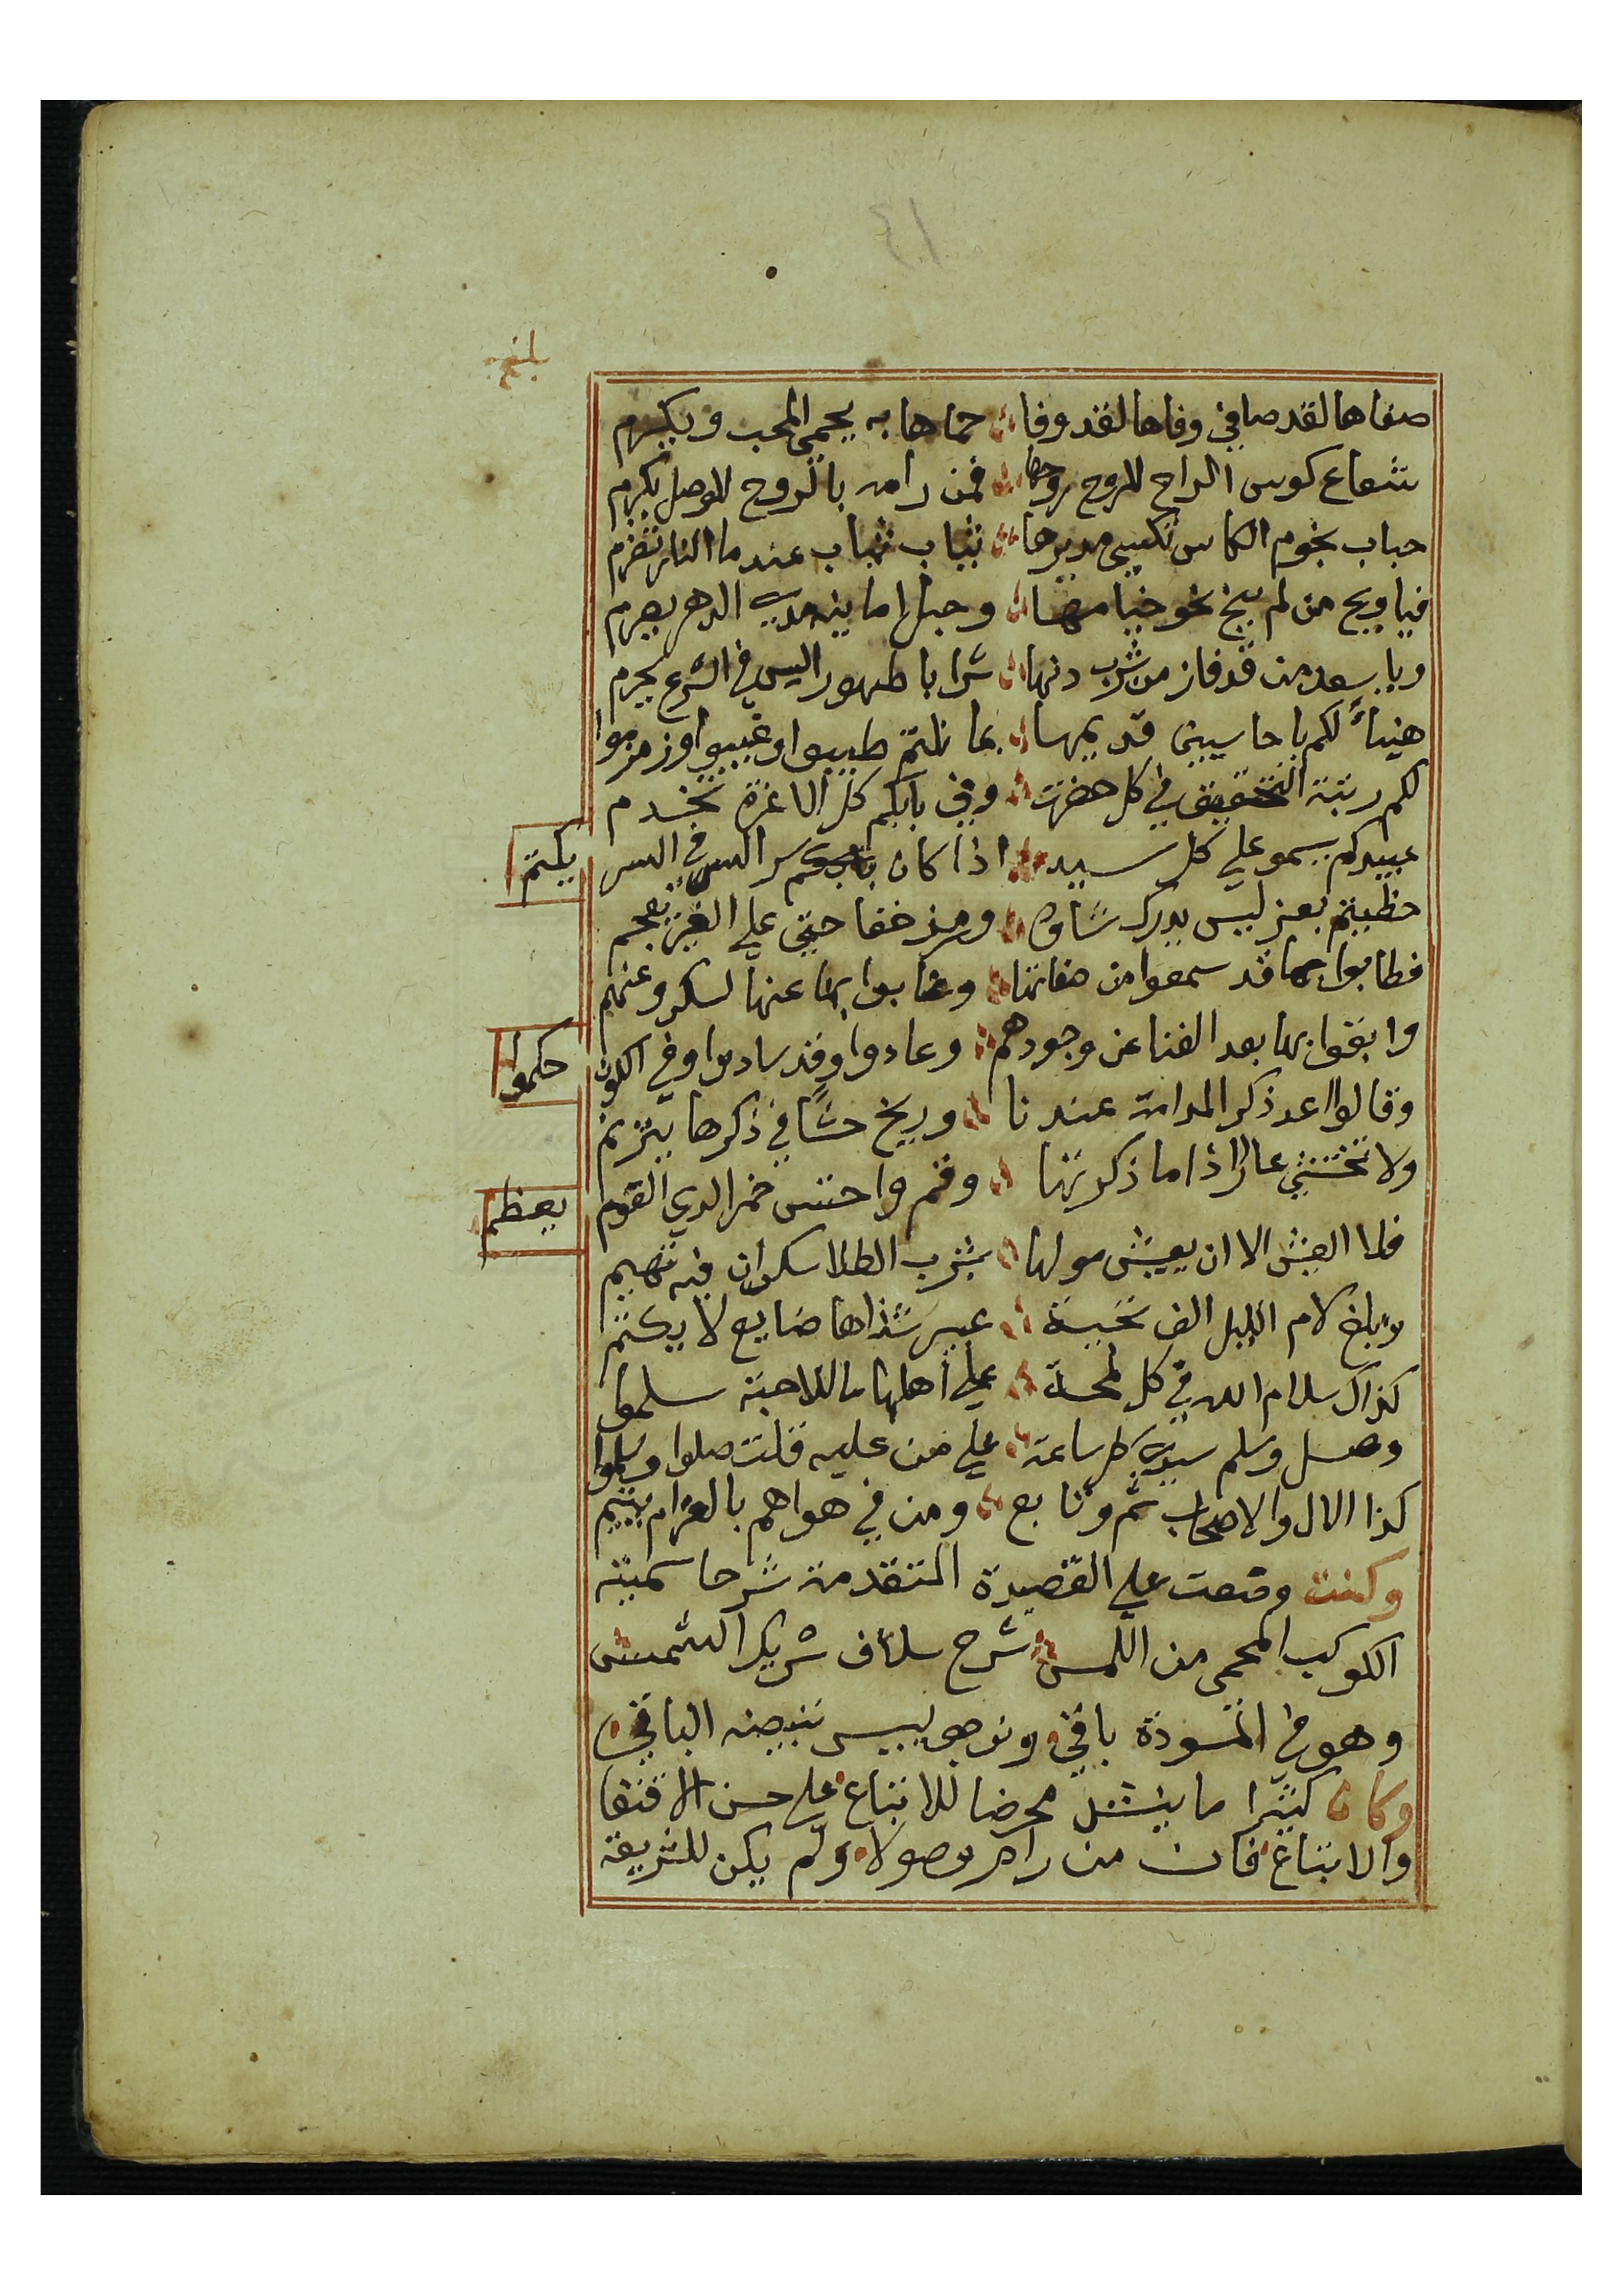 بلغ
صفاها لقد صافي وفاها لقد وفا حماها به يحمي المحب ويكرم
شعاع كوس الراح للروح روحها فمن رامه بالروح للوصل يكرم
حباب نجوم الكاس تكسي مديرها ثياب شهاب عندما النار تضرم
فيا ويح من لم ينخ نحو خيامها وحبل اما بينه مدي الدهر يصرم
ويا سعد من قد فاز من شرب دنها شرابا طهورا ليس في الشرع يحرم
هنيأ لكم يا حاسيين قديمها بما نلتم طيبوا وغيبوا وزمزموا
لكم رتبة التحقيق في كل حضرت وفي بابكم كل الاعزة تخدم
عبيدكم يسمو علي كل سيد اذا كان سر السر في السر يكتم
حظيتم بعز ليس يدرك شاوه ورمز خفا حتي علي الغير يعجم
فطابوا بما قد سمعوا من صفاتنا وغابوا بها عنها لسكر وعنهم
وابقوا بها بعد الفنا عن وجودهم وعادوا وقد سادوا وفي الكون حكموا
وقالوا اعد ذكر المدامة عندنا وريح حشا في ذكرها يترنم
ولا تختشي عارا اذا ما ذكرتها وقم واحتس خمر الدي القوم يعظم
فلا العيش الا ان يعيش مولها بشرب الطلا سكران فيه تهيم
وابلغ لام الليل الف تحية عبير شذاها ضايع لا يكتم
كذاك سلام الله في كل لمحة علي اهلها ما للاحبة سلموا
وصل وسلم سيدي كل ساعة علي من عليه قلت صلوا وسلموا
كذا الال والاصحاب ثم وتابع ومن في هواهم بالغرام يتيم
وكنت وضعت علي القصيدة المتقدمة شرحا سميته
الكوكب المحمي من اللمس شرح سلاف شريكا الشمس
وهو في المسودة باقي ونرجو ييسر تبيضه الباقي
وكان كثيرا ما ينشد محرضا للاتباع علي حسن الاقتفا
والاتباع فان من رام وصولا ولم يكن للشريعة